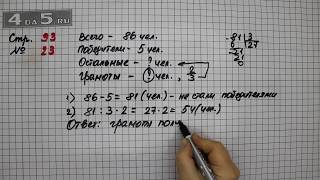 4 DA 5
Стр. 93
№ 23
Всего - 86 чел.
Победители - 5 чел.
Остальные - ? чел.
Грамоты - ? чел, 2/3
81 3
6 27
21
21
0
1) 86-5 = 81 (чел.) - не стали победителями
2) 81 : 3 · 2 = 27 · 2 = 54 (чел.)
Ответ: грамоты полу